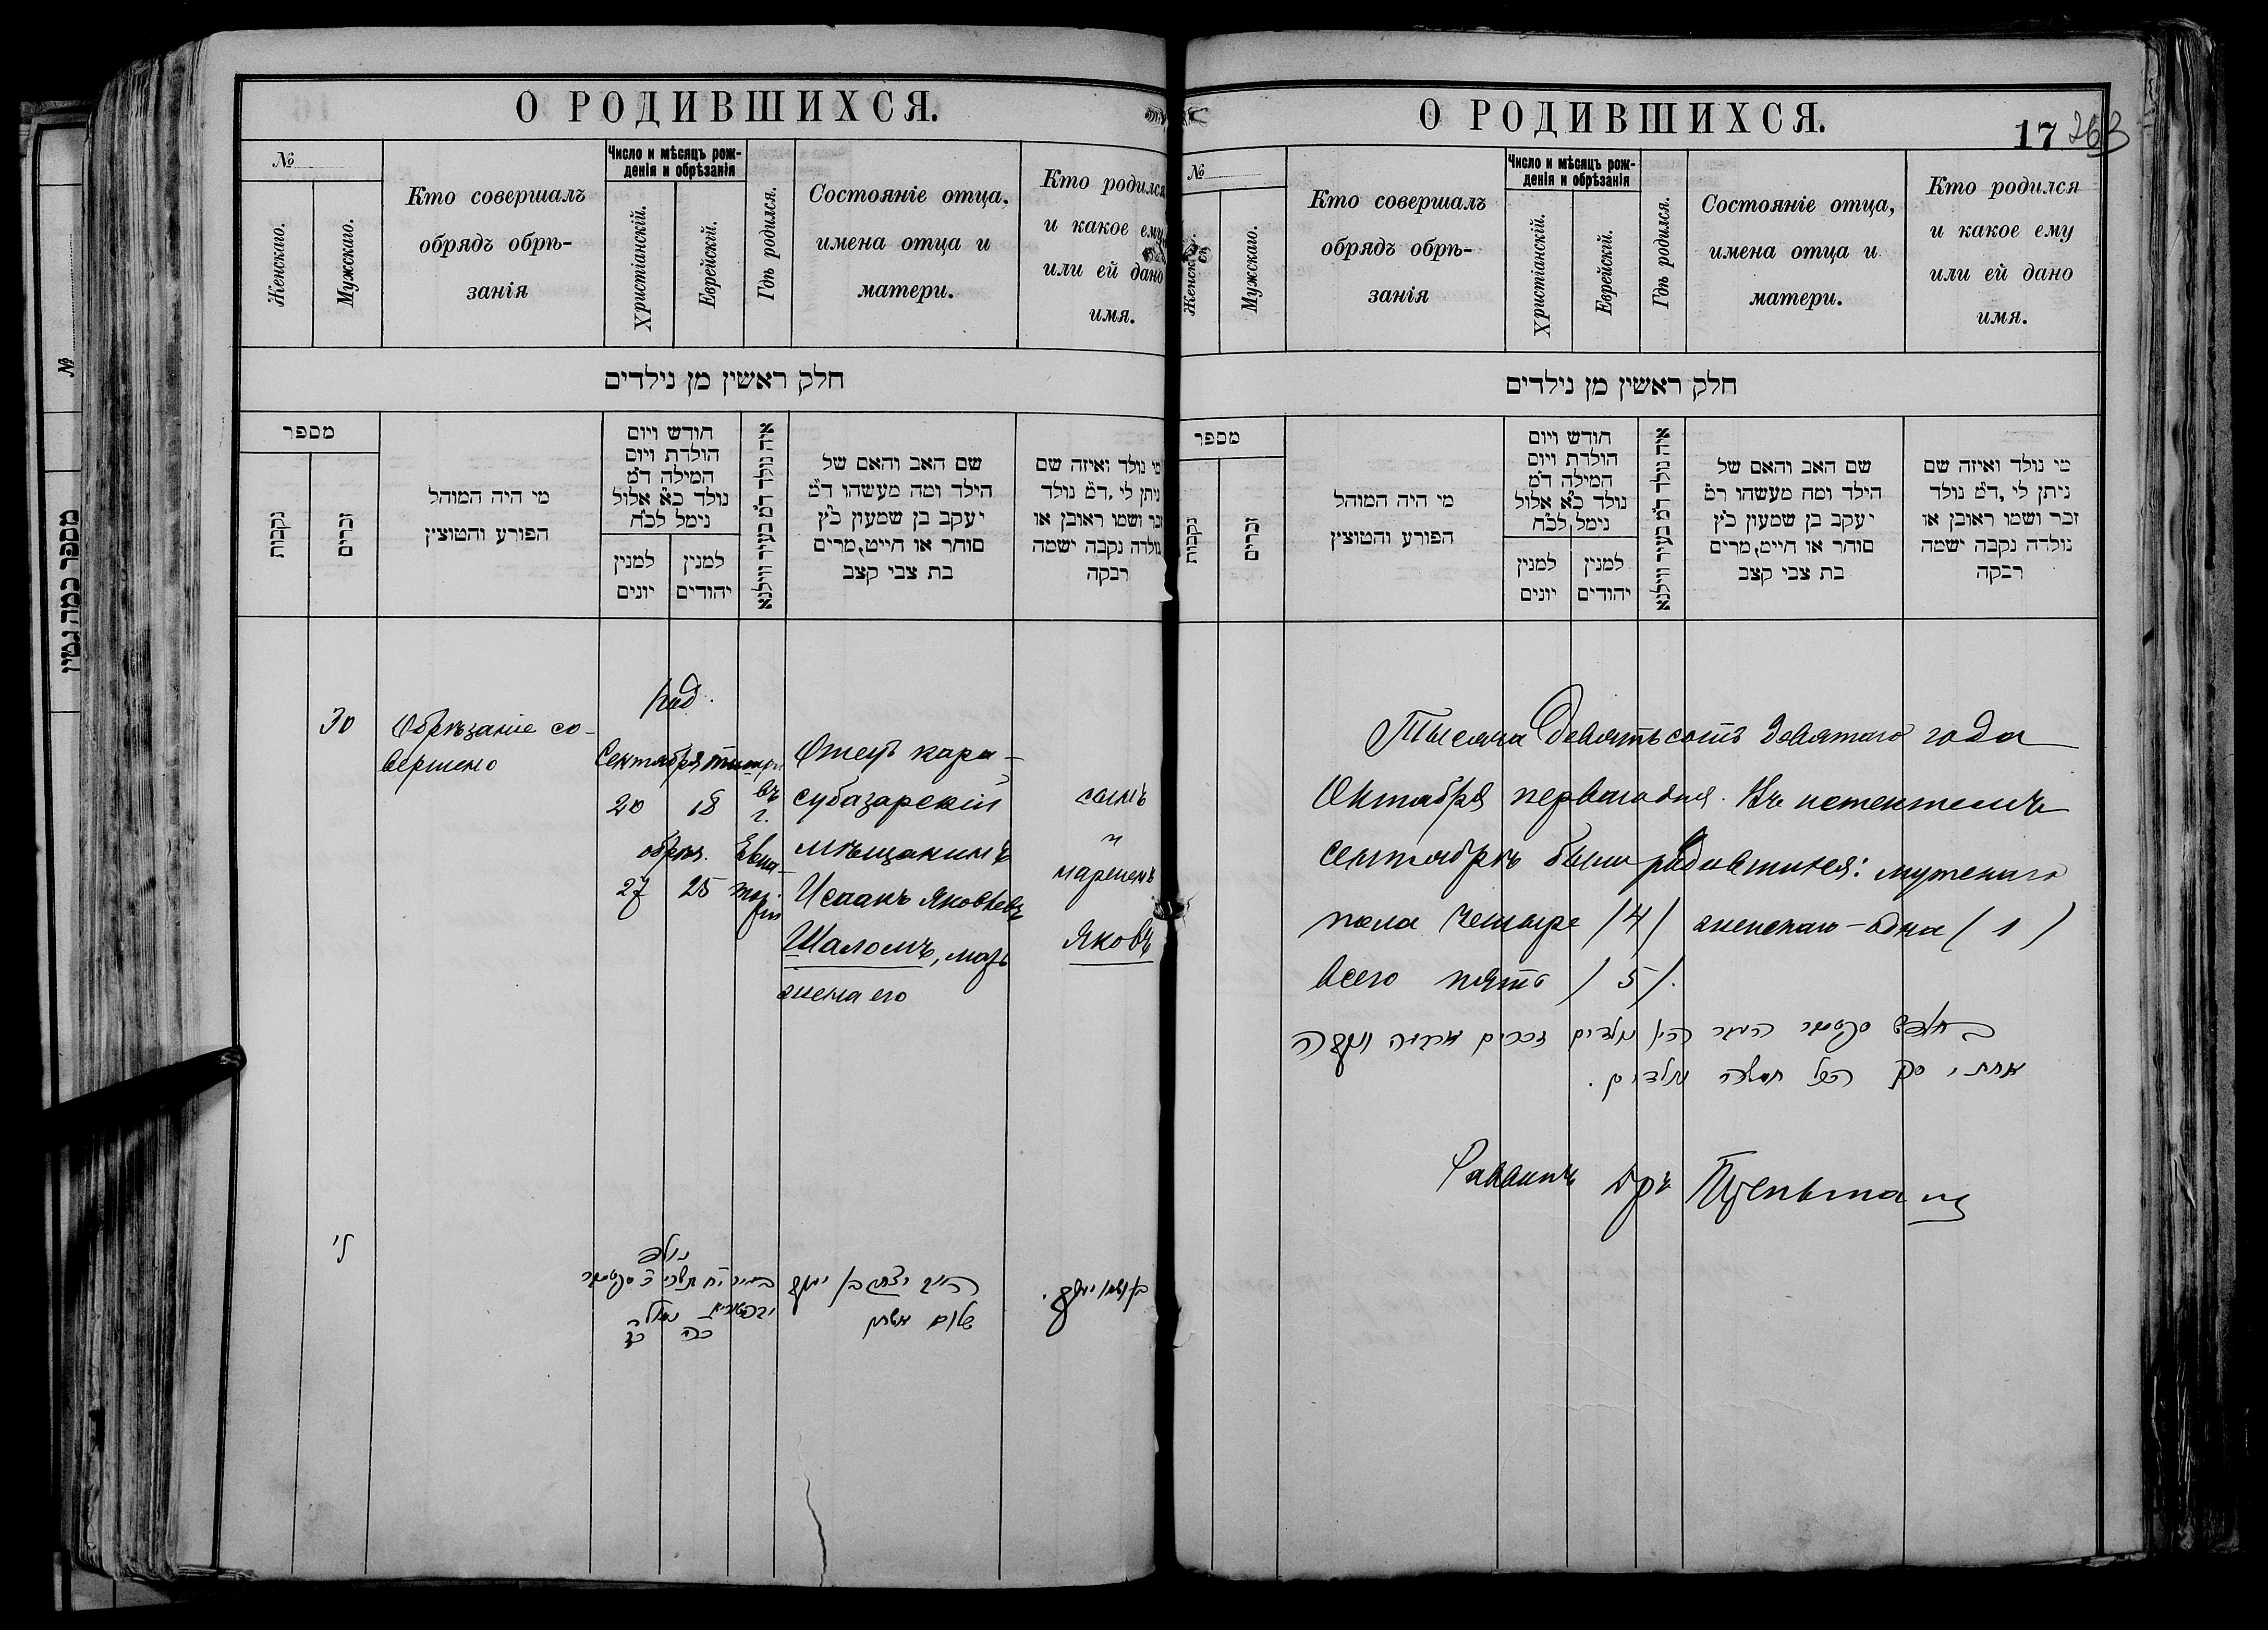 О РОДИВШИХСЯ.
№
Женскаго.
Мужскаго.
Кто совершалъ
обрядъ обрѣ-
занія
Число и мѣсяцъ рож-
денія и обрѣзанія
Христіанскій.
Еврейскій.
Гдѣ родился.
Состояніе отца,
имена отца и
матери.
Кто родился
и какое ему
или ей дано
имя.
חלק ראשין מן נילדים
מספר
נקבות
זכרים
מי היה המוהל
הפורע והטוצץ
חודש ויום
הולדת ויום
המילה ד״מ
נולד כ״א אלול
נימל לכ״ח
למנין
יונים
למנין
יהודים
איה נולד ד״מ בעיר ווילנא
שם האב והאם של
הילד ומה מעשהו ד״מ
יעקב בן שמעון כ״ץ
סוחר או חייט, מרים
בת צבי קצב
מי נולד ואיזה שם
ניתן לי, ד״מ נולד
זכר ושמו ראובן או
נולדה נקבה ישמה
רבקה
30
Обрѣзаніе со-
вершено
Сентября
20 18
обрѣз.
27 25
въ
г.
Евпа-
торіи
Отецъ кара-
субазарскій
мѣщанинъ
Исаакъ Яковлевъ
Шаломъ, мать
жена его
сынъ
и
нареченъ
Яковъ
ל׳
נולד
שלום
О РОДИВШИХСЯ.
17 263
№
Женскаго.
Мужскаго.
Кто совершалъ
обрядъ обрѣ-
занія
Число и мѣсяцъ рож-
денія и обрѣзанія
Христіанскій.
Еврейскій.
Гдѣ родился.
Состояніе отца,
имена отца и
матери.
Кто родился
и какое ему
или ей дано
имя.
חלק ראשין מן נילדים
מספר
נקבות
זכרים
מי היה המוהל
הפורע והטוצץ
חודש ויום
הולדת ויום
המילה ד״מ
נולד כ״א אלול
נימל לכ״ח
למנין
יונים
למנין
יהודים
איה נולד ד״מ בעיר ווילנא
שם האב והאם של
הילד ומה מעשהו ד״מ
יעקב בן שמעון כ״ץ
סוחר או חייט, מרים
בת צבי קצב
מי נולד ואיזה שם
ניתן לי, ד״מ נולד
זכר ושמו ראובן או
נולדה נקבה ישמה
רבקה
Тысяча девятьсотъ девятаго года
Октября перваго дня. Въ истекшемъ
сентябрѣ было родившихся: мужескаго
пола четыре /4/ женскаго – одна (1)
всего пять /5/.
נולדים זכרים ארבעה ונקבה
אחת, סך הכל חמשה נולדים.
Раввинъ
№
מספר כמה גטין